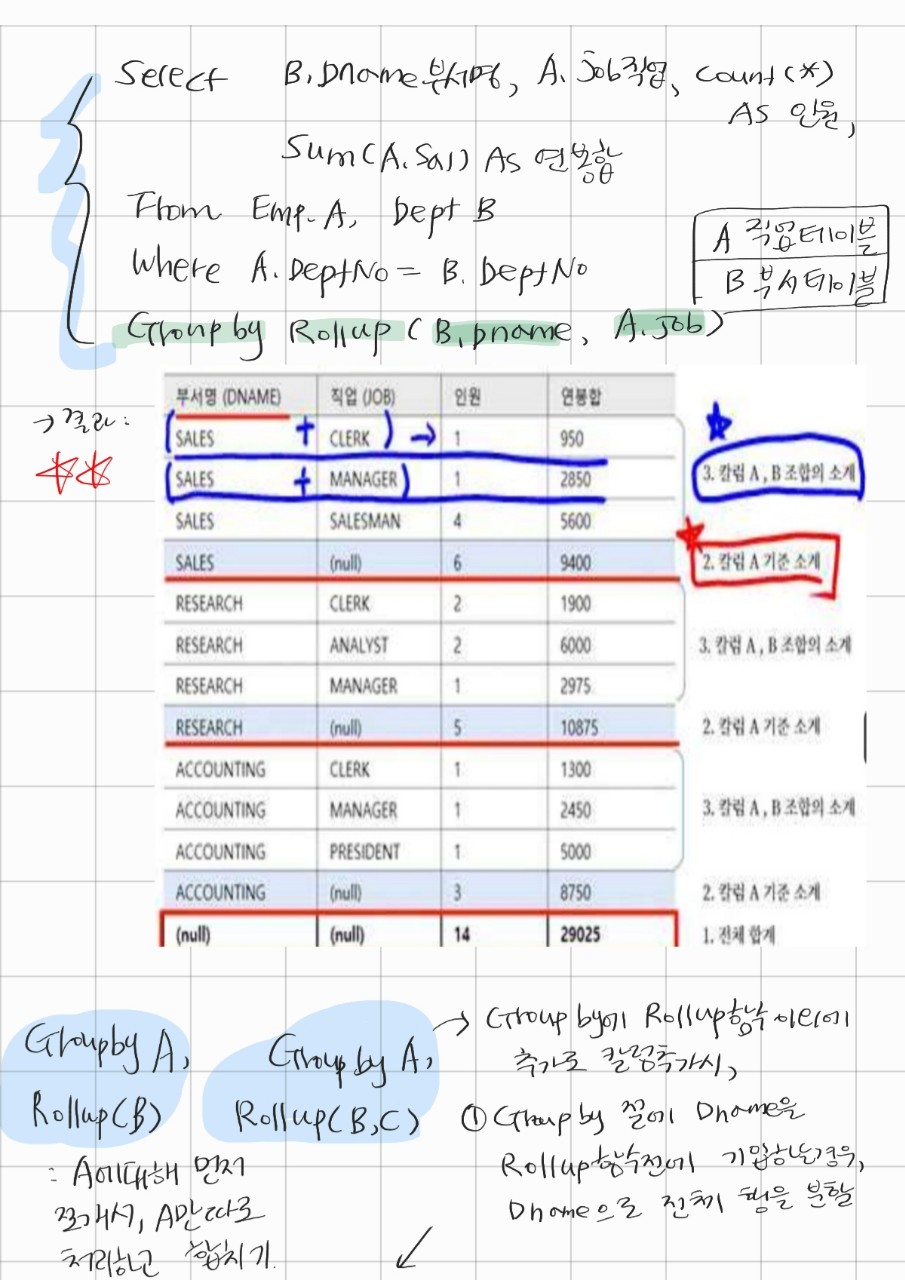 Select B.Dname부서명, A.Job직업, Count(*)
AS 인원,
Sum(A.Sal) As 연봉합
From Emp.A, Dept B
Where A.DeptNo = B.DeptNo
Group by Rollup (B.Dname, A.Job)
A 직업테이블
B 부서테이블
→ 결과:
부서명 (DNAME) 직업 (JOB) 인원 연봉합
SALES + CLERK → 1 950
SALES + MANAGER 1 2850 3. 칼럼 A , B 조합의 소계
SALES SALESMAN 4 5600
SALES (null) 6 9400 2. 칼럼 A 기준 소계
RESEARCH CLERK 2 1900
RESEARCH ANALYST 2 6000 3. 칼럼 A , B 조합의 소계
RESEARCH MANAGER 1 2975
RESEARCH (null) 5 10875 2. 칼럼 A 기준 소계
ACCOUNTING CLERK 1 1300
ACCOUNTING MANAGER 1 2450 3. 칼럼 A , B 조합의 소계
ACCOUNTING PRESIDENT 1 5000
ACCOUNTING (null) 3 8750 2. 칼럼 A 기준 소계
(null) (null) 14 29025 1. 전체 합계
Group by A,
Rollup(B)
: A에대해 먼저
쪼개서, A만따로
처리하고 합치기.
Group by A,
Rollup(B,C)
→ Group by에 Rollup함수 이외에
추가로 칼럼추가시,
① Group by 절에 Dname을
Rollup함수전에 기입하는경우,
Dname으로 전체 행을 분할